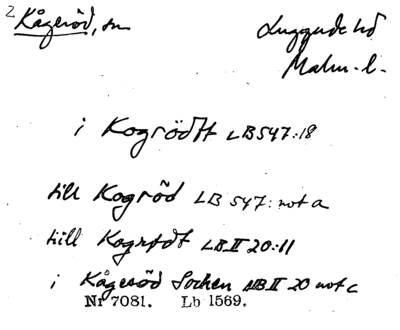 2 Kågeröd, sn
Luggude hd
Malm. l.
i Kogrödtt LB 547:18
till Kogröd LB 547: not a
till Kogrödt LB II 20:11
i Kågeröd Sochen LB II 20 not c
Nr 7081. Lb 1569.